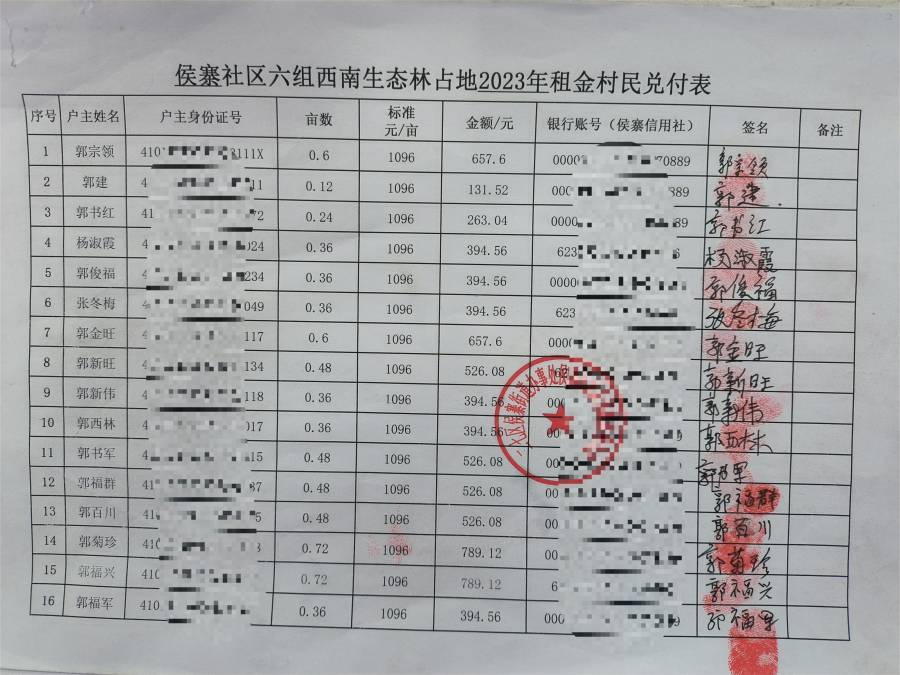 侯寨社区六组西南生态林占地2023年租金村民兑付表
序号 户主姓名 户主身份证号 亩数 标准元/亩 金额/元 银行账号（侯寨信用社） 签名 备注
1 郭宗领 410 3111X 0.6 1096 657.6 0000 70889 郭宗领
2 郭建 4 11 0.12 1096 131.52 000 889 郭建
3 郭书红 41 72 0.24 1096 263.04 0000 89 郭书红
4 杨淑霞 4 024 0.36 1096 394.56 623 6 杨淑霞
5 郭俊福 4 234 0.36 1096 394.56 0000 郭俊福
6 张冬梅 4 049 0.36 1096 394.56 623 张冬梅
7 郭金旺 4 117 0.6 1096 657.6 000 郭金旺
8 郭新旺 41 134 0.48 1096 526.08 62 郭新旺
9 郭新伟 41 118 0.36 1096 394.56 00 郭新伟
10 郭西林 41 017 0.36 1096 394.56 00 郭西林
11 郭书军 41 15 0.48 1096 526.08 00 郭书军
12 郭福群 41 37 0.48 1096 526.08 00 郭福群
13 郭百川 41 5 0.48 1096 526.08 00 郭百川
14 郭菊珍 410 0.72 1096 789.12 00 郭菊珍
15 郭福兴 410 0.72 1096 789.12 6 郭福兴
16 郭福军 410 0.36 1096 394.56 000 9 郭福军
七区侯寨街道办事处侯